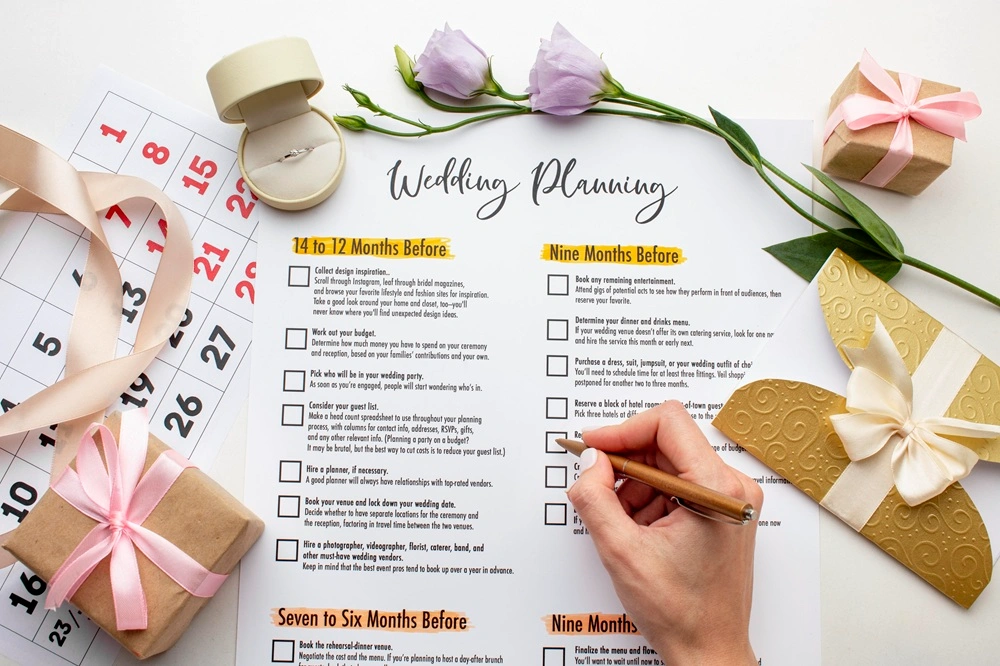 Wedding Planning
14 to 12 Months Before
Collect design inspiration..
Scroll through Instagram, leaf through bridal magazines,
and browse your favorite lifestyle and fashion sites for inspiration.
Take a good look around your home and closet, too—you'll
never know where you'll find unexpected design ideas.
Work out your budget.
Determine how much money you have to spend on your ceremony
and reception, based on your families' contributions and your own.
Pick who will be in your wedding party.
As soon as you're engaged, people will start wondering who's in.
Consider your guest list.
Make a head count spreadsheet to use throughout your planning
process, with columns for contact info, addresses, RSVPs, gifts,
and any other relevant info. (Planning a party on a budget?
It may be brutal, but the best way to cut costs is to reduce your guest list.)
Hire a planner, if necessary.
A good planner will always have relationships with top-rated vendors.
Book your venue and lock down your wedding date.
Decide whether to have separate locations for the ceremony and
the reception, factoring in travel time between the two venues.
Hire a photographer, videographer, florist, caterer, band, and
other must-have wedding vendors.
Keep in mind that the best event pros tend to book up over a year in advance.
Seven to Six Months Before
Book the rehearsal-dinner venue.
Negotiate the cost and the menu. If you're planning to host a day-after brunch
Nine Months Before
Book any remaining entertainment.
Attend gigs of potential acts to see how they perform in front of audiences, then
reserve your favorite.
Determine your dinner and drinks menu.
If your wedding venue doesn't offer its own catering service, look for one
and hire the service this month or early next.
Purchase a dress, suit, jumpsuit, or your wedding outfit of
You'll need to schedule time for at least three fittings. Veil
postponed for another two to three months.
Reserve a block of hotel
Pick three hotels at
Nine Months
Finalize the menu and
You'll want to wait until now to
1
8
15
7
21
13
5
27
19
26
10
16